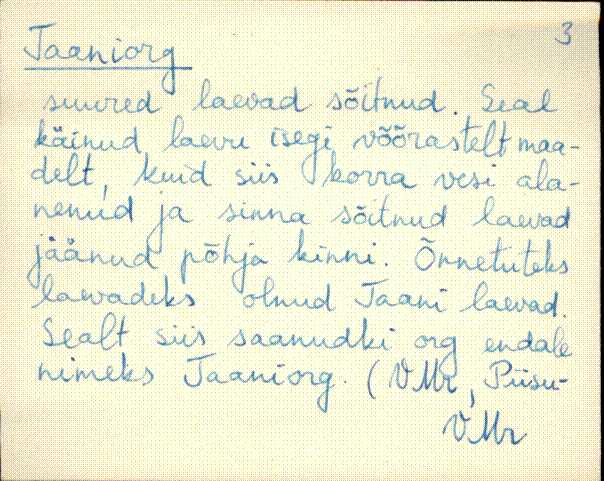 3
Jaaniorg
suured laevad sõitnud. Seal
käinud laevu isegi võõrastelt maa-
delt, kuid siis korra vesi ala-
nenud ja sinna sõitnud laevad
jäänud põhja kinni. Õnnetuteks
laevadeks olnud Jaani laevad.
Sealt siis saanudki org endale
nimeks Jaaniorg. (VMr, Piisu-
VMr